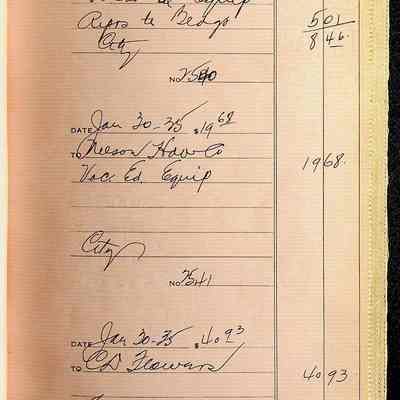 Equip
Reprs to Bldgs 501
City 8 46
No 2540
DATE Jan 30-35 $19 68
TO Nelson Hdw Co 19 68
Voc. Ed. Equip
City
No 2541
DATE Jan 30-35 $40 93
TO C D Flowers 40 93